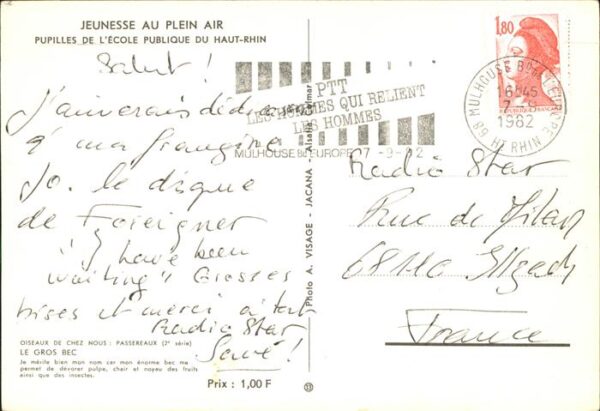 JEUNESSE AU PLEIN AIR
PUPILLES DE L'ÉCOLE PUBLIQUE DU HAUT-RHIN
Salut !
J'aimerais dédicacer
à ma frangine
Jo. le disque
de Foreigner
"I have been
waiting" Grosses
bises et merci à tout
Radio Star
Salvé !
OISEAUX DE CHEZ NOUS : PASSEREAUX (2e série)
LE GROS BEC
Je mérite bien mon nom car mon énorme bec me
permet de dévorer pulpe, chair et noyau des fruits
ainsi que des insectes.
Prix : 1,00 F
Photo A. VISAGE - JACANA - Alsatia Colmar
PTT
LES HOMMES QUI RELIENT
LES HOMMES
MULHOUSE Bd EUROPE 7-9-82
1,80
RÉPUBLIQUE FRANÇAISE
68 MULHOUSE Bd DE L'EUROPE
16H45
7-9
1982
HT RHIN
Radio Star
Rue de Milan
68110 Illzach
France